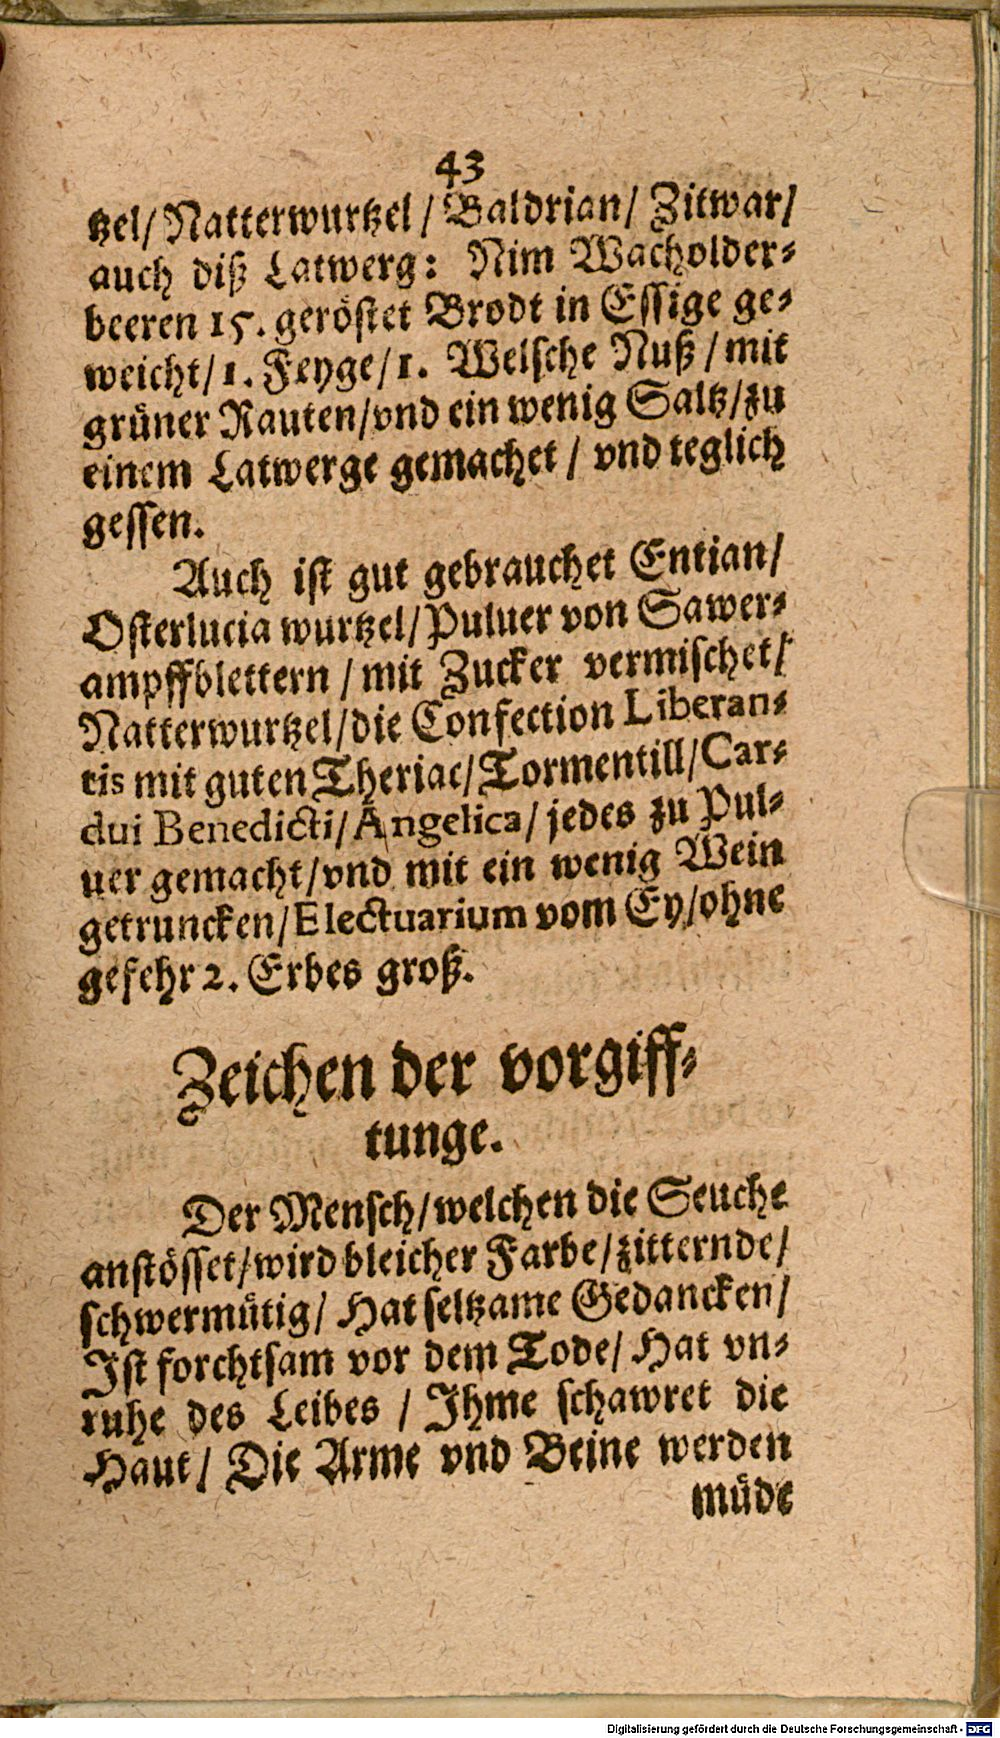 43
tzel/ Natterwurtzel / Baldrian/ Zitwar/
auch diß Latwerg: Nim Wacholder-
beeren 15. geröstet Brodt in Essige ge-
weicht/ 1. Feyge/ 1. Welsche Nuß / mit
grüner Rauten/vnd ein wenig Saltz/zu
einem Latwerge gemachet / vnd teglich
gessen.
Auch ist gut gebrauchet Entian/
Osterlucia wurtzel/Puluer von Sawer-
ampffblettern / mit Zucker vermischet/
Natterwurtzel/die Confection Liberan-
tis mit guten Theriac/Tormentill/Car-
dui Benedicti/ Angelica/ jedes zu Pul-
uer gemacht/vnd mit ein wenig Wein
getruncken/Electuarium vom Ey/ohne
gefehr 2. Erbes groß.
Zeichen der vorgiff-
tunge.
Der Mensch/welchen die Seuche
anstösset/wird bleicher Farbe/zitternde/
schwermütig/ Hat seltzame Gedancken/
Ist forchtsam vor dem Tode/ Hat vn-
ruhe des Leibes / Ihme schawret die
Haut/ Die Arme vnd Beine werden
müde
Digitalisierung gefördert durch die Deutsche Forschungsgemeinschaft - DFG